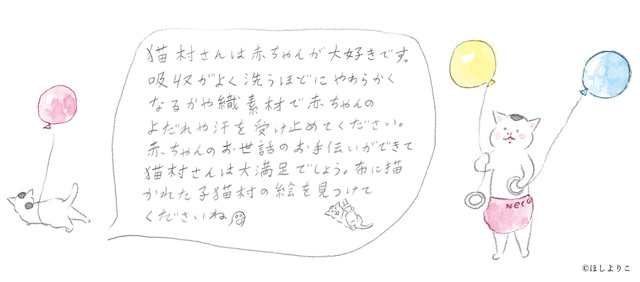 猫村さんは赤ちゃんが大好きです。
吸収がよく洗うほどにやわらかく
なるかや織素材で赤ちゃんの
よだれや汗を受け止めてください。
赤ちゃんのお世話のお手伝いができて
猫村さんは大満足でしょう。布に描
かれた子猫村の絵を見つけて
くださいね
neco
©ほしよりこ